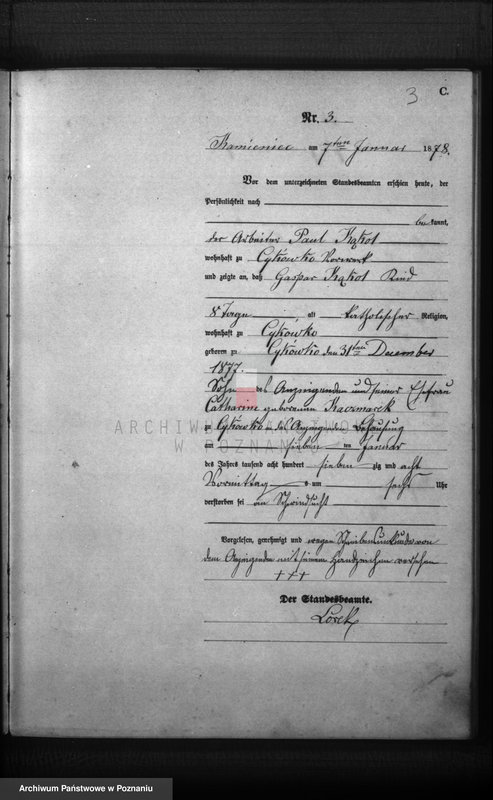 3
C.
Nr. 3.
Kamieniec am 7ten Januar 1878.
Vor dem unterzeichneten Standesbeamten erschien heute, der
Persönlichkeit nach
bekannt,
der Arbeiter Paul Kąkol
wohnhaft zu Cykowko Vorwerk
und zeigte an, daß Gaspar Kąkol Kind
8 Tage alt katholischer Religion,
wohnhaft zu Cykówko
geboren zu Cykówko den 31ten December
1877.
Sohn des Anzeigenden und seiner Ehefrau
Catharine geborenen Kaczmarek
zu Cykówko in des Anzeigenden Behausung
am sieben ten Januar
des Jahres tausend acht hundert siebenzig und acht
Vormittag s um sechs Uhr
verstorben sei an Schwindsucht
Vorgelesen, genehmigt und wegen Schreibensunkunde von
dem Anzeigenden mit seinem Handzeichen versehen
+++
Der Standesbeamte.
Lorek
ARCHIWUM PAŃSTWOWE
W POZNANIU
Archiwum Państwowe w Poznaniu